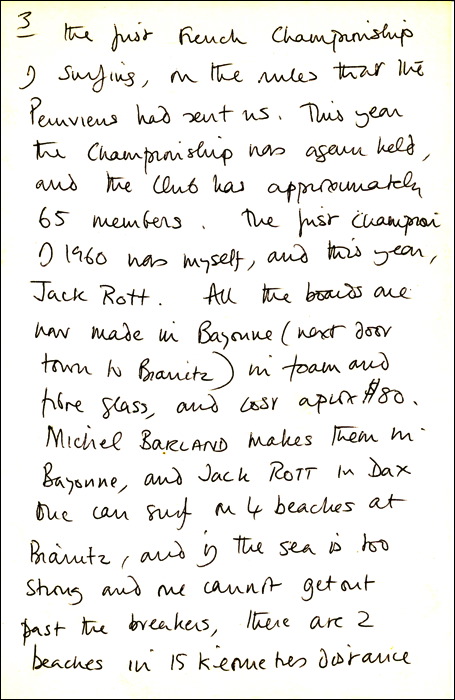 3
the first French Championship
of surfing, on the rules that the
Peruviens had sent us. This year
the Championship was again held,
and the club has approximately
65 members. The first Champion
of 1960 was myself, and this year,
Jack Rott. All the boards are
now made in Bayonne (next door
town to Biarritz) in foam and
fibre glass, and cost aprox $80.
Michel BARLAND makes them in
Bayonne, and Jack ROTT in Dax
One can surf on 4 beaches at
Biarritz, and if the sea is too
strong and one cannot get out
past the breakers, there are 2
beaches in 15 kilometres distance